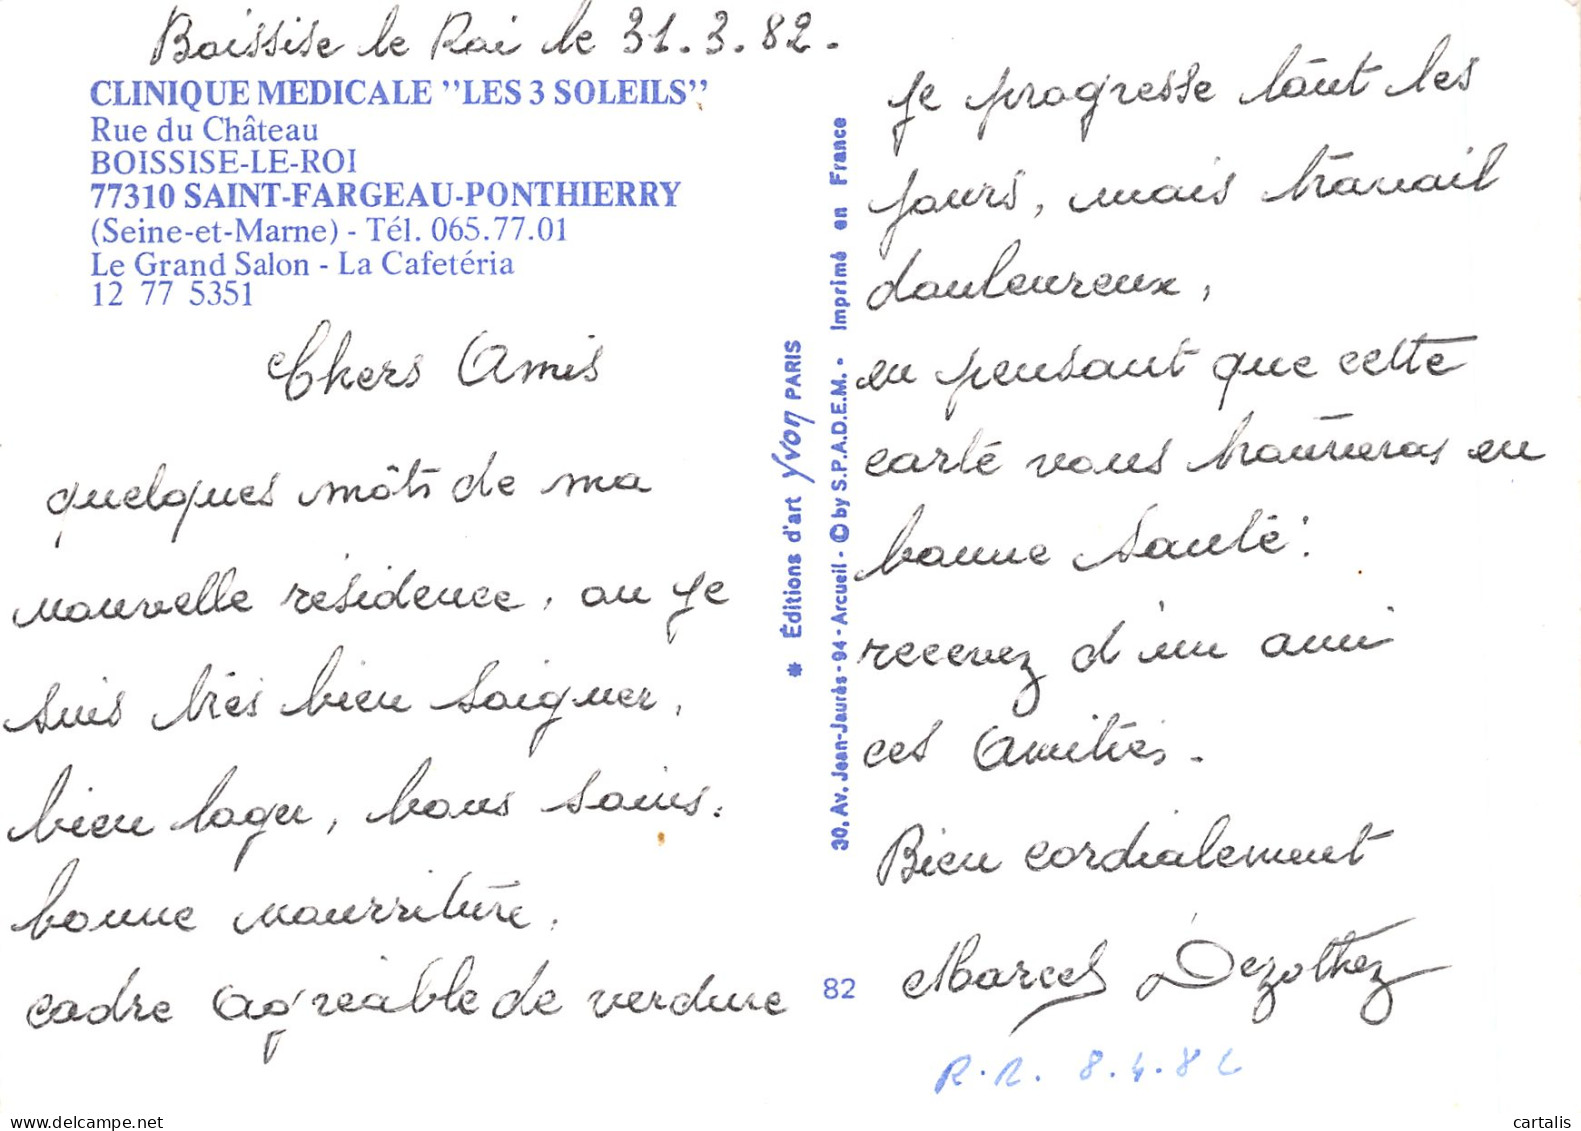 Boissise le Roi le 31.3.82.
CLINIQUE MEDICALE "LES 3 SOLEILS"
Rue du Château
BOISSISE-LE-ROI
77310 SAINT-FARGEAU-PONTHIERRY
(Seine-et-Marne) - Tél. 065.77.01
Le Grand Salon - La Cafetéria
12 77 5351
Chers Amis
quelques môts de ma
nouvelle résidence, ou je
suis très bien soigner,
bien loger, bons soins.
bonne nourriture.
cadre agréable de verdure
* Éditions d'art Yvon PARIS
30, Av. Jean-Jaurès - 94 - Arcueil - © by S.P.A.D.E.M. - Imprimé en France
82
je progresse tout les
jours, mais travail
douloureux,
en pensant que cette
carte vous trouveras en
bonne santé.
recevez d'un ami
ces Amitiés.
Bien cordialement
Marcel Dezothez
R.R. 8.4.82
cartalis